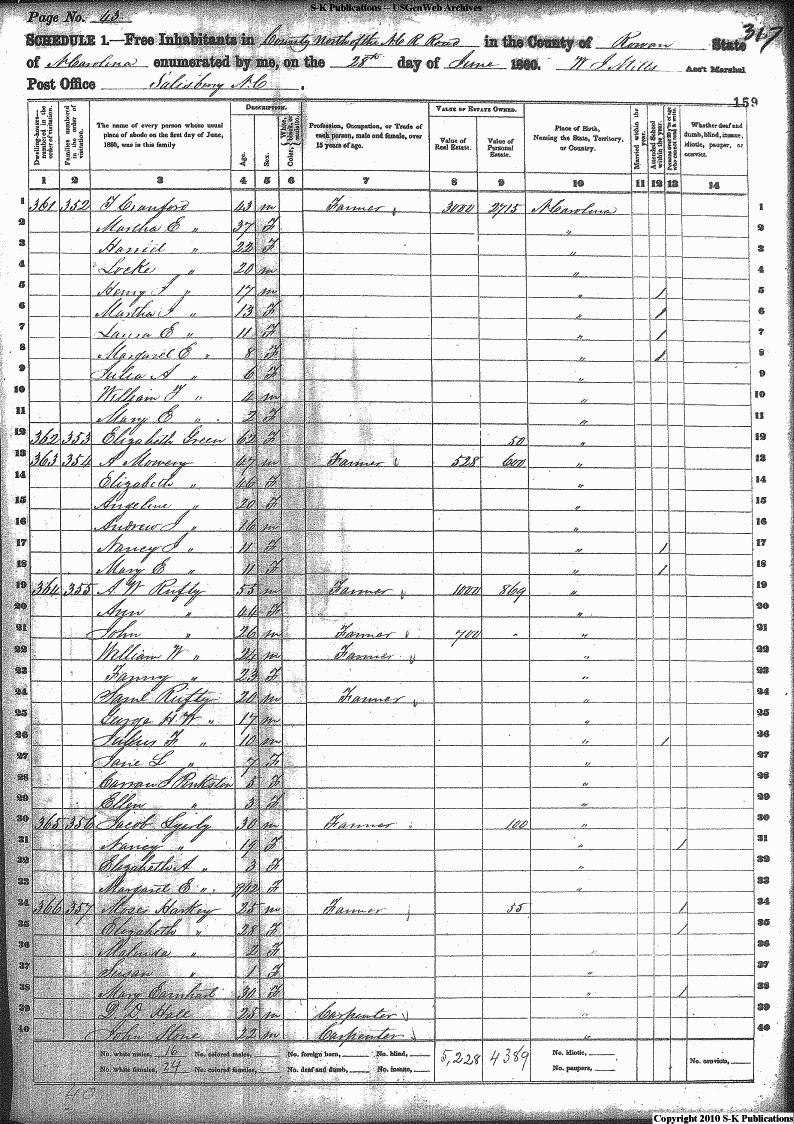 S-K Publications – USGenWeb Archives
Page No. 43
317
SCHEDULE 1.—Free Inhabitants in County North of the N C R Road in the County of Rowan State
of N Carolina enumerated by me, on the 28th day of June 1860. W J Mills Ass't Marshal
Post Office Salisbury N.C.
159
Dwelling-houses—numbered in the order of visitation.
Families numbered in the order of visitation.
The name of every person whose usual place of abode on the first day of June, 1860, was in this family
DESCRIPTION.
Age.
Sex.
Color, White, black, or mulatto.
Profession, Occupation, or Trade of each person, male and female, over 15 years of age.
VALUE OF ESTATE OWNED.
Value of Real Estate.
Value of Personal Estate.
Place of Birth, Naming the State, Territory, or Country.
Married within the year.
Attended School within the year.
Persons over 20 y'rs of age who cannot read & write.
Whether deaf and dumb, blind, insane, idiotic, pauper, or convict.
1 2 3 4 5 6 7 8 9 10 11 12 13 14
1 361 352 T Cranford 43 m Farmer 3000 2715 N Carolina 1
2 Martha E " 37 F " 2
3 Harriet " 22 F " 3
4 Locke " 20 m " 4
5 Henry J " 17 m " / 5
6 Martha J " 13 F " / 6
7 Laura E " 11 F " / 7
8 Margaret E " 8 F " / 8
9 Julia A " 6 F " 9
10 William F " 4 m " 10
11 Mary E " 2 F " 11
12 362 353 Elizabeth Green 62 F 50 " 12
13 363 354 A Mowery 47 m Farmer 528 600 " 13
14 Elizabeth " 46 F " 14
15 Angeline " 20 F " 15
16 Andrew J " 16 m " 16
17 Nancy J " 11 F " / 17
18 Mary E " 11 F " / 18
19 364 355 A W Rufty 55 m Farmer 1000 869 " 19
20 Ann " 44 F " 20
21 John " 26 m Farmer 700 - " 21
22 William W " 24 m Farmer " 22
23 Fanny " 23 F " 23
24 Saml Rufty 20 m Farmer " 24
25 George H W " 17 m " 25
26 Julius F " 10 m " / 26
27 Jane L " 7 F " 27
28 J Pinkston 5 F " 28
29 Ellen " 3 F " 29
30 365 356 Jacob Lyerly 30 m Farmer 100 " 30
31 Nancy " 19 F " / 31
32 Elizabeth A " 3 F " 32
33 Margaret E " 9/12 F " 33
34 366 357 Moses Harkey 25 m Farmer 55 / 34
35 Elizabeth " 28 F / 35
36 Malinda " 2 F " 36
37 Susan " 1 F " 37
38 Mary Earnhart 30 F " / 38
39 D. D. Hall 25 m Carpenter " 39
40 John Stone 22 m Carpenter " 40
No. white males, 16 No. colored males, No. foreign born, No. blind, 5,228 4389 No. idiotic,
No. white females, 24 No. colored females, No. deaf and dumb, No. insane, No. paupers, No. convicts,
Copyright 2010 S-K Publications